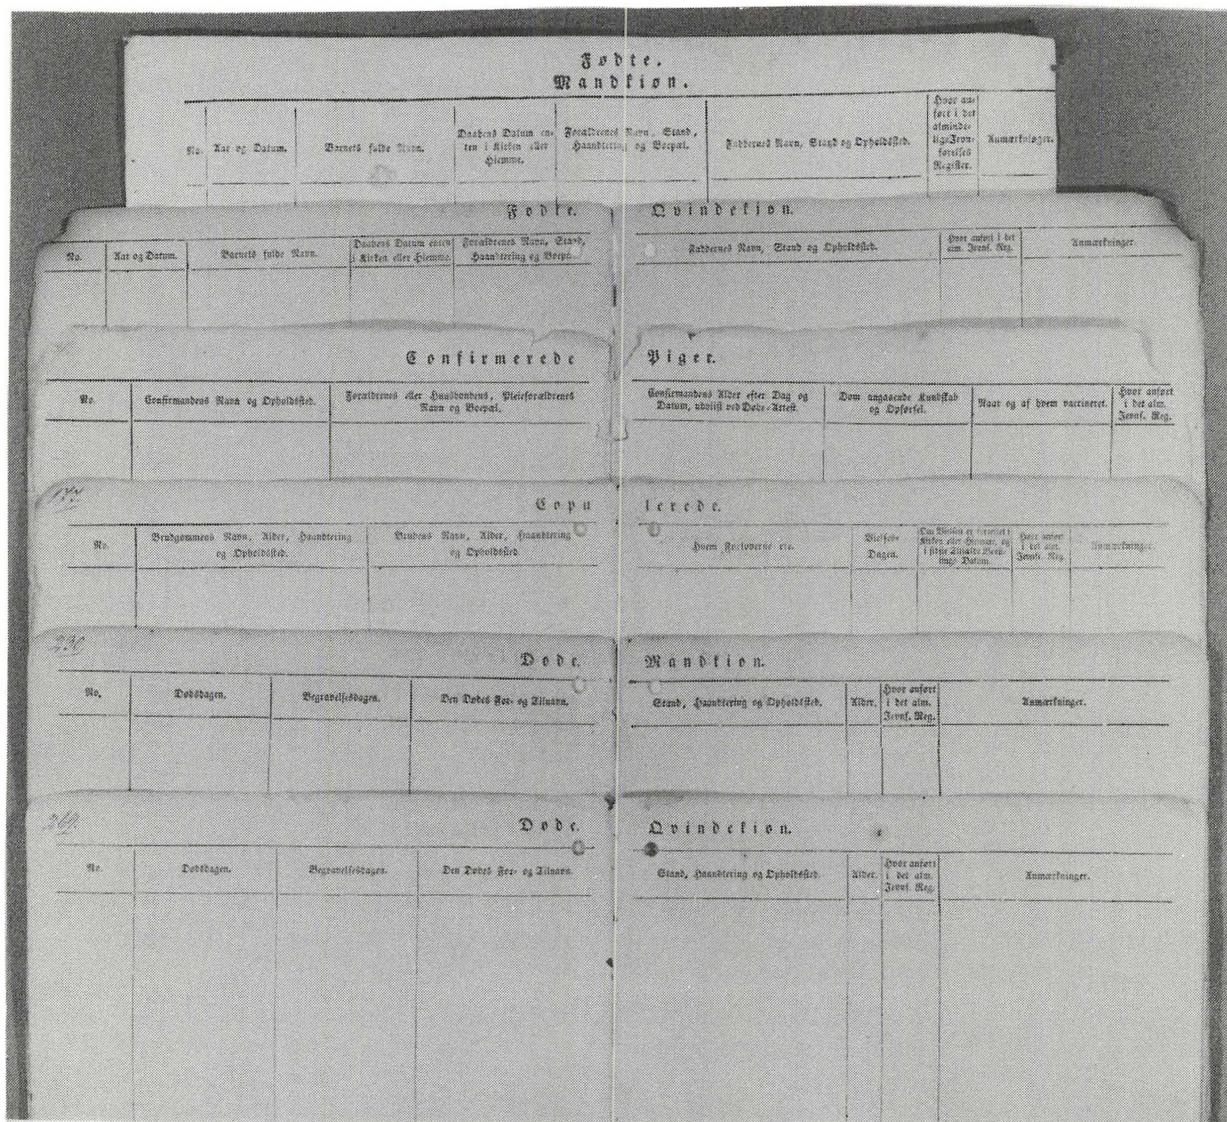 Fødte.
Mandkiøn.
No.
Aar og Datum.
Barnets fulde Navn.
Daabens Datum en-
ten i Kirken eller
Hiemme.
Forældrenes Navn, Stand,
Haandtering og Boepæl.
Faddernes Navn, Stand og Opholdssted.
Hvor an-
ført i det
alminde-
lige Jevn-
førelses
Register.
Anmærkninger.
Fødte. Qvindekiøn.
No.
Aar og Datum.
Barnets fulde Navn.
Daabens Datum enten
i Kirken eller Hiemme.
Forældrenes Navn, Stand,
Haandtering og Boepæl.
Faddernes Navn, Stand og Opholdssted.
Hvor anført i det
alm. Jevnf. Reg.
Anmærkninger
Confirmerede Piger.
No.
Confirmandens Navn og Opholdssted.
Forældrenes eller Huusbondens, Pleieforældrenes
Navn og Boepæl.
Confirmandens Alder efter Dag og
Datum, udviist ved Døbe-Attest.
Dom angaaende Kundskab
og Opførsel.
Naar og af hvem vaccineret.
Hvor anført
i det alm.
Jevnf. Reg.
177
Copulerede.
No.
Brudgommens Navn, Alder, Haandtering
og Opholdssted.
Brudens Navn, Alder, Haandtering
og Opholdssted
Hvem Forloverne ere.
Vielses-
Dagen.
Om Vielsen er forrettet i
Kirken eller Hiemme, og
i sidste Tilfælde Bevil-
lings Datum.
Hvor anført
i det alm.
Jevnf. Reg
Anmærkninger.
230
Døde. Mandkiøn.
No.
Dødsdagen.
Begravelsesdagen.
Den Dødes For- og Tilnavn.
Stand, Haandtering og Opholdssted.
Alder.
Hvor anført
i det alm.
Jevnf. Reg.
Anmærkninger.
269.
Døde. Qvindekiøn.
No.
Dødsdagen.
Begravelsesdagen.
Den Dødes For- og Tilnavn.
Stand, Haandtering og Opholdssted.
Alder.
Hvor anført
i det alm.
Jevnf. Reg.
Anmærkninger.